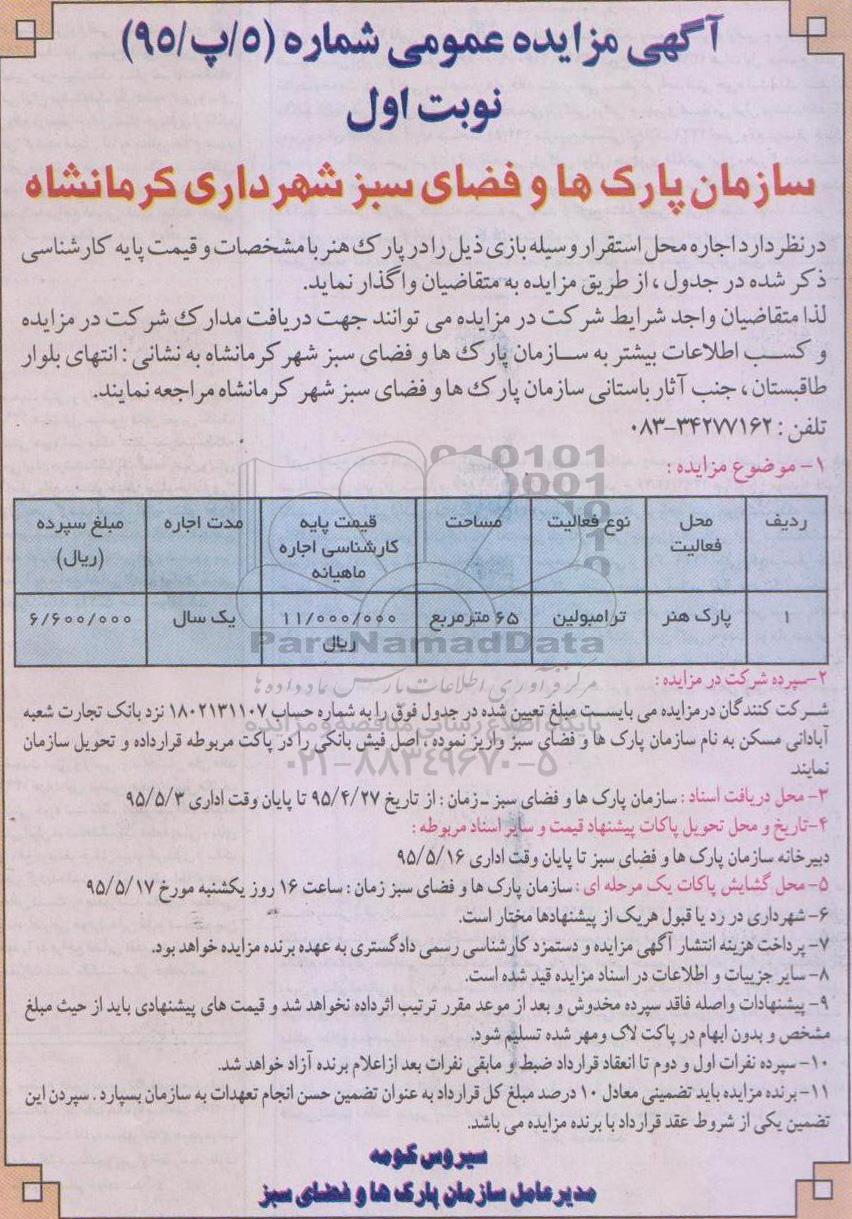 آگهی مزایده عمومی شماره (۵/پ/۹۵)
نوبت اول
سازمان پارک ها و فضای سبز شهرداری کرمانشاه
در نظر دارد اجاره محل استقرار وسیله بازی ذیل را در پارک هنر با مشخصات و قیمت پایه کارشناسی
ذکر شده در جدول ، از طریق مزایده به متقاضیان واگذار نماید.
لذا متقاضیان واجد شرایط شرکت در مزایده می توانند جهت دریافت مدارک شرکت در مزایده
و کسب اطلاعات بیشتر به سازمان پارک ها و فضای سبز شهر کرمانشاه به نشانی : انتهای بلوار
طاقبستان ، جنب آثار باستانی سازمان پارک ها و فضای سبز شهر کرمانشاه مراجعه نمایند.
تلفن : ۳۴۲۷۷۱۶۲-۰۸۳
۱- موضوع مزایده :
ردیف محل فعالیت نوع فعالیت مساحت قیمت پایه کارشناسی اجاره ماهیانه مدت اجاره مبلغ سپرده (ریال)
۱ پارک هنر ترامبولین ۶۵ مترمربع ۱۱/۰۰۰/۰۰۰ ریال یک سال ۶/۶۰۰/۰۰۰
ParsNamadData
مرکز فرآوری اطلاعات پارس نماد داده ها
پایگاه اطلاع رسانی مناقصه و مزایده
۰۲۱-۸۸۳۴۹۶۷۰-۵
۲-سپرده شرکت در مزایده :
شرکت کنندگان در مزایده می بایست مبلغ تعیین شده در جدول فوق را به شماره حساب ۱۸۰۲۱۳۱۱۰۷ نزد بانک تجارت شعبه
آبادانی مسکن به نام سازمان پارک ها و فضای سبز واریز نموده ، اصل فیش بانکی را در پاکت مربوطه قرارداده و تحویل سازمان
نمایند.
۳- محل دریافت اسناد : سازمان پارک ها و فضای سبز ـ زمان : از تاریخ ۹۵/۴/۲۷ تا پایان وقت اداری ۹۵/۵/۳
۴-تاریخ و محل تحویل پاکات پیشنهاد قیمت و سایر اسناد مربوطه :
دبیرخانه سازمان پارک ها و فضای سبز تا پایان وقت اداری ۹۵/۵/۱۶
۵- محل گشایش پاکات یک مرحله ای : سازمان پارک ها و فضای سبز زمان : ساعت ۱۶ روز یکشنبه مورخ ۹۵/۵/۱۷
۶- شهرداری در رد یا قبول هریک از پیشنهادها مختار است.
۷- پرداخت هزینه انتشار آگهی مزایده و دستمزد کارشناسی رسمی دادگستری به عهده برنده مزایده خواهد بود.
۸- سایر جزییات و اطلاعات در اسناد مزایده قید شده است.
۹- پیشنهادات واصله فاقد سپرده مخدوش و بعد از موعد مقرر ترتیب اثرداده نخواهد شد و قیمت های پیشنهادی باید از حیث مبلغ
مشخص و بدون ابهام در پاکت لاک ومهر شده تسلیم شود.
۱۰- سپرده نفرات اول و دوم تا انعقاد قرارداد ضبط و مابقی نفرات بعد ازاعلام برنده آزاد خواهد شد.
۱۱- برنده مزایده باید تضمینی معادل ۱۰ درصد مبلغ کل قرارداد به عنوان تضمین حسن انجام تعهدات به سازمان بسپارد . سپردن این
تضمین یکی از شروط عقد قرارداد با برنده مزایده می باشد.
سیروس کومه
مدیرعامل سازمان پارک ها و فضای سبز